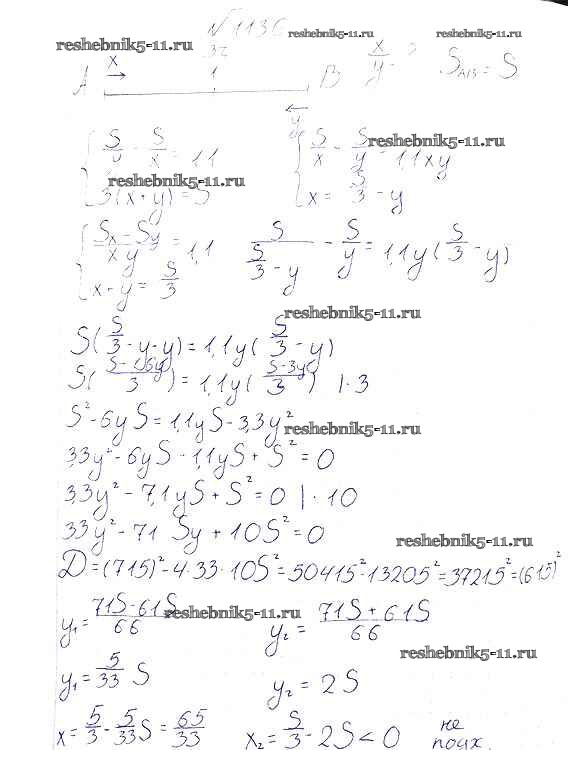 № 1136
reshebnik5-11.ru reshebnik5-11.ru reshebnik5-11.ru
A x B x/y - ? S_AB = S
y
{ S/y - S/x = 1,1 { S/x - S/y = 1,1xy
reshebnik5-11.ru
3(x+y) = S x = S/3 - y
reshebnik5-11.ru
{ Sx - Sy / xy = 1,1 S / (S/3 - y) - S/y = 1,1y(S/3 - y)
x + y = S/3
reshebnik5-11.ru
S(S/3 - y - y) = 1,1y(S/3 - y)
S((S - 6y)/3) = 1,1y((S - 3y)/3) | · 3
S² - 6yS = 1,1yS - 3,3y²
reshebnik5-11.ru
3,3y² - 6yS - 1,1yS + S² = 0
3,3y² - 7,1yS + S² = 0 | · 10
33y² - 71 Sy + 10S² = 0
reshebnik5-11.ru
D = (71S)² - 4·33·10S² = 5041S² - 1320S² = 3721S² = (61S)²
y₁ = (71S - 61S)/66 y₂ = (71S + 61S)/66
reshebnik5-11.ru
reshebnik5-11.ru
y₁ = 5/33 S y₂ = 2S
x = S/3 - 5/33 S = 6S/33 x₂ = S/3 - 2S < 0 не подх.
reshebnik5-11.ru